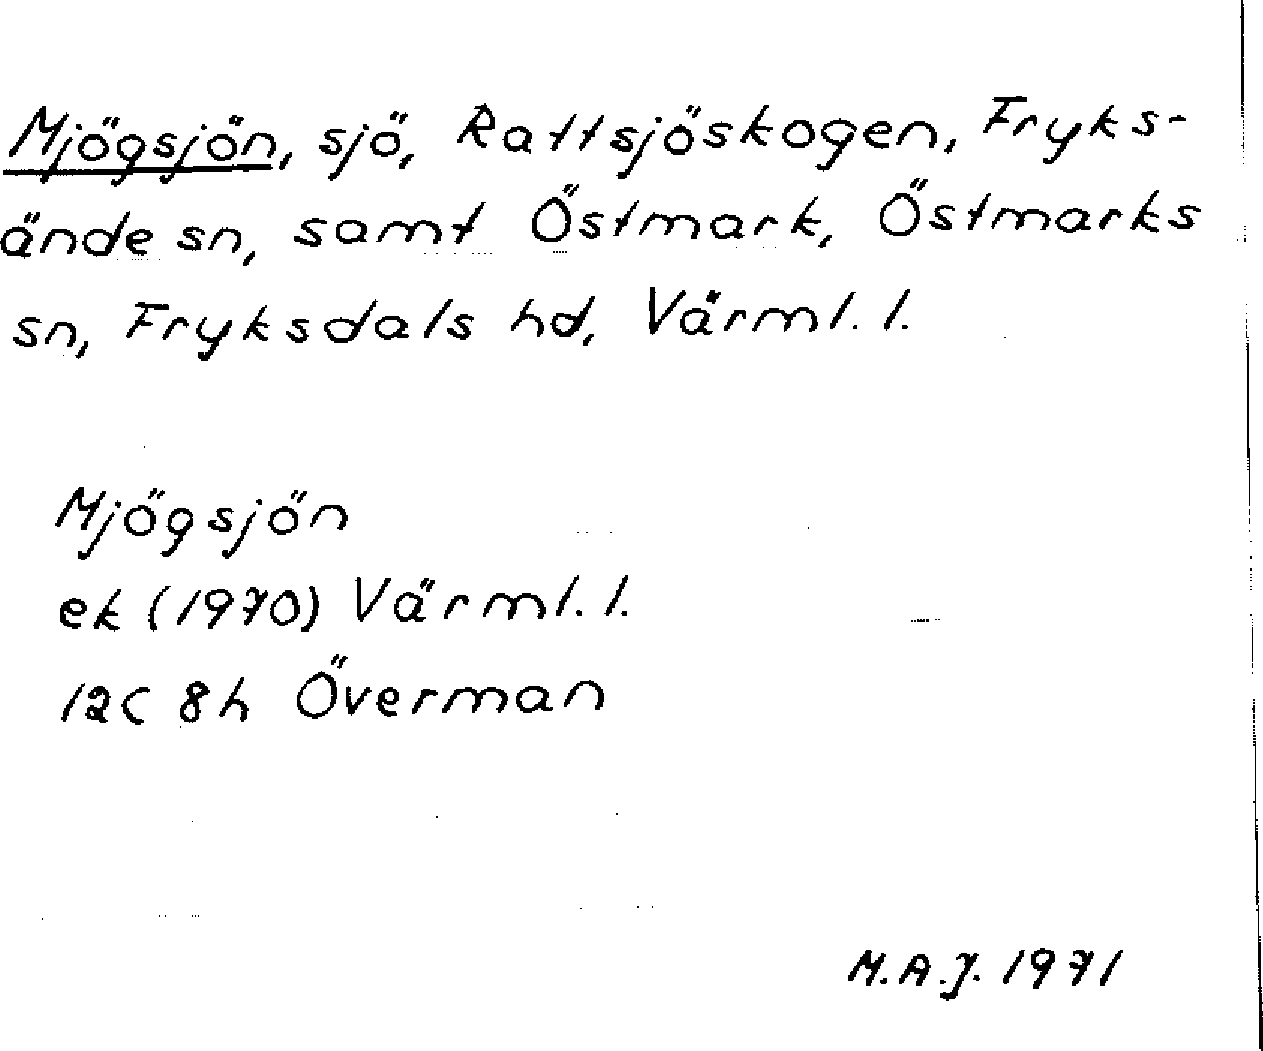 Mjögsjön, sjö, Rattsjöskogen, Fryks-
ände sn, samt Östmark, Östmarks
sn, Fryksdals hd, Värml. l.
Mjögsjön
ek (1970) Värml. l.
12C 8h Överman
M.A.J. 1971